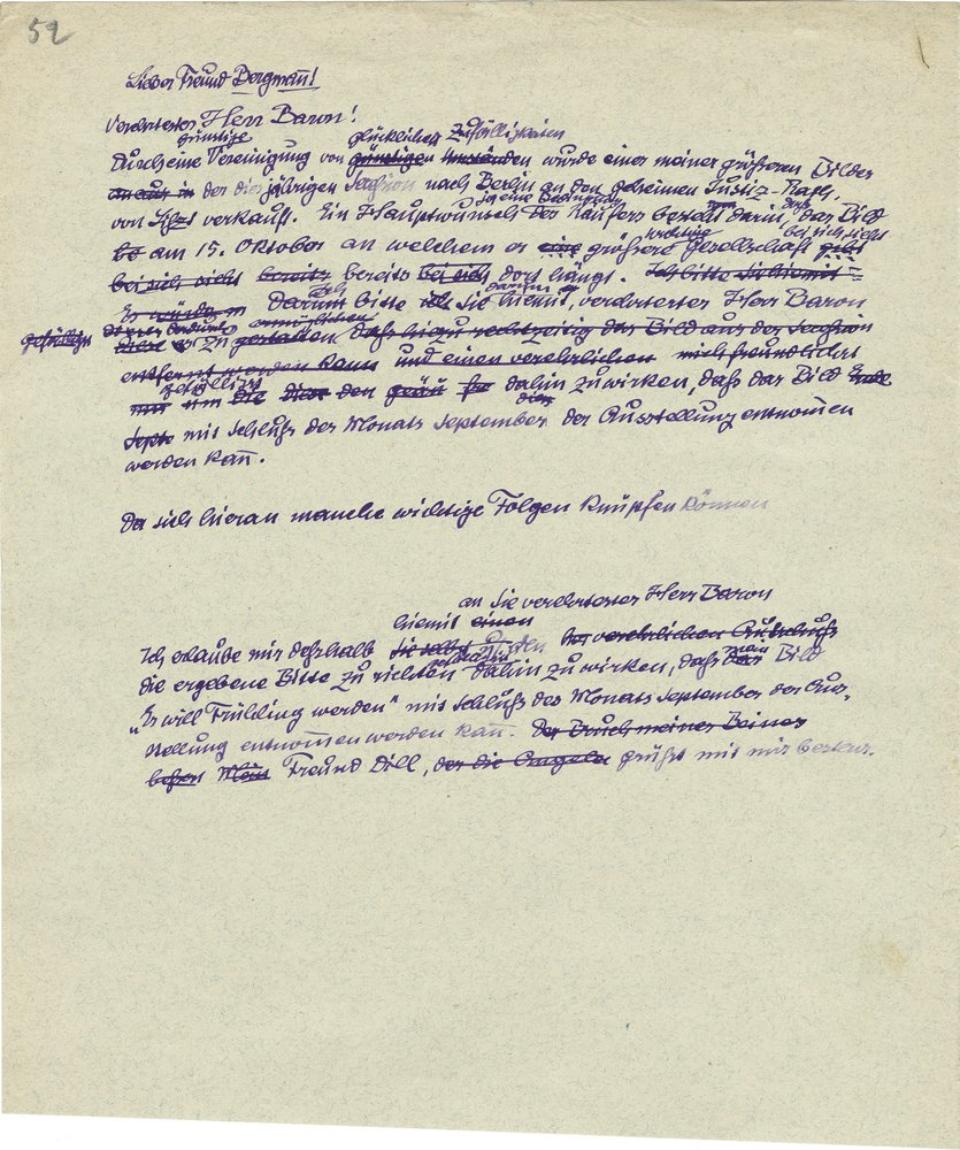 52
Lieber Freund Bergman̄!
Verehrtester Herr Baron!
günstige glücklichen Zufälligkeiten
Durch eine Vereinigung von günstigen Umständen wurde eines meiner größeren Bilder
in der diesjährigen Secession nach Berlin an den geheimen Justiz-Rath
von verkauft. Ein Hauptwunsch des Käufers besteht darin, das Bild
wichtige bei sich sieht
am 15. Oktober an welchem er eine größere Gesellschaft gibt
bei sich sieht bereits bereits bei sich dort hängt. Ich bitte Sie hiemit
Es würde Darum bitte ich Sie hiemit, verehrtester Herr Baron
gefälligst
ermöglichen
zu gestatten daß hiezu rechtzeitig das Bild aus der Secession
entfernt werden kann und einen verehrlichen mich freundlichst
gefälligst
um die diese den dahin zu wirken, daß das Bild Ende
Septe mit Schluß des Monats September der Ausstellung entnom̄en
werden kan̄.
Da sich hieran manche wichtige Folgen knüpfen können
an Sie verehrtester Herr Baron
hiemit einen
Ich erlaube mir deßhalb Sie selbst verehrlichen Ausschuß
mein
die ergebene Bitte zu richten dahin zu wirken, daß das Bild
„Es will Frühling werden" mit Schluß des Monats September der Aus-
stellung entnom̄en werden kan̄. Der Bruch meines Beines
bessert Mein Freund Dill, der die grüßt mit mir bestens.